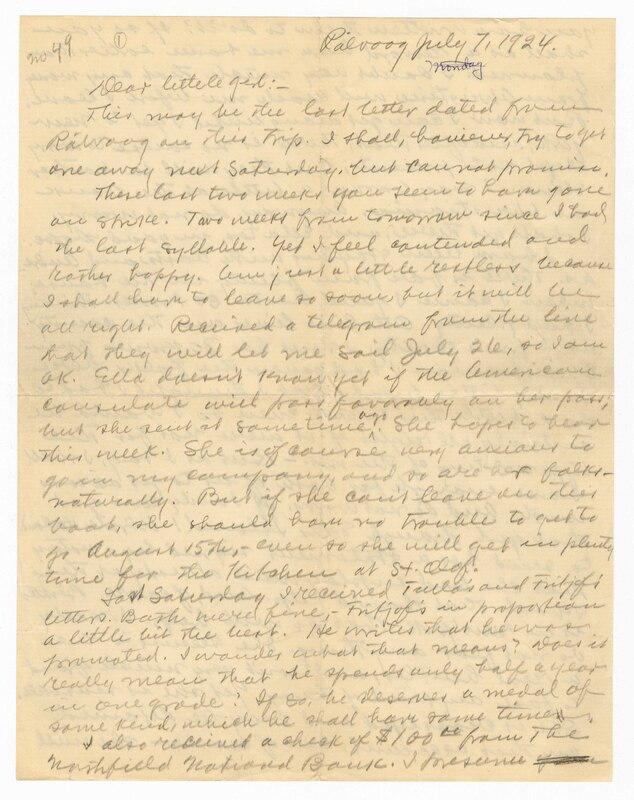 no 49 ① Rälvoog July 7, 1924.
Monday
Dear little girl:-
This may be the last letter dated from
Rälvoog on this trip. I shall, however, try to get
one away next Saturday, but cannot promise.
These last two weeks you seem to have gone
on strike. Two weeks from tomorrow since I had
the last syllable. Yet I feel contended and
rather happy. Am just a little restless because
I shall have to leave so soon, but it will be
all right. Received a telegram from the line
that they will let me sail July 26, so I am
OK. Ella doesn't know yet if the American
consulate will pass favorably on her pass;
but she sent it sometime ago. She hopes to hear
this week. She is of course very anxious to
go in my company, and so are her folks-
naturally. But if she can't leave on this
boat, she should have no trouble to get to
go August 15th,- even so she will get in plenty
time for the Kitchen at St. Olaf.
Last Saturday I received Tulla's and Fritjof's
letters. Both were fine,- Fritjof's in proportion
a little bit the best. He writes that he was
promoted. I wonder what that means? Does it
really mean that he spends only half a year
in one grade? If so, he deserves a medal of
some kind, which he shall have some time.
I also received a check of $100.00 from The
Northfield National Bank. I presume